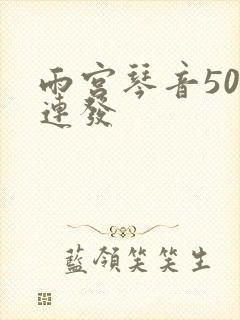 雨宮琴音50
連發
藍領笑笑生